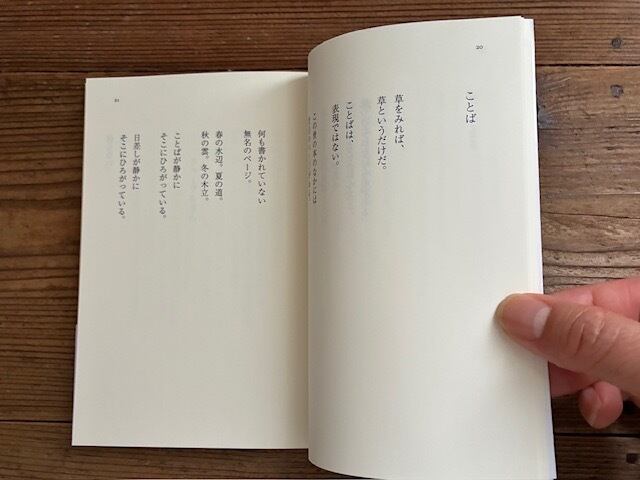 20
ことば
草をみれば、
草というだけだ。
ことばは、
表現ではない。
この世の本のなかには
何も書かれていない
無名のページ。
春の水辺。夏の道。
秋の雲。冬の木立。
ことばが静かに
そこにひろがっている。
日差しが静かに
そこにひろがっている。
21